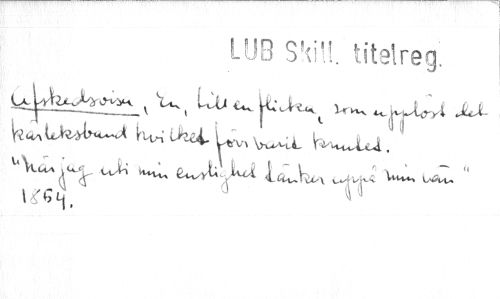 LUB Skill. titelreg.
Afskedsvisa, En, till en flicka, som upplöst det
kärleksband hvilket förr varit knutet.
"När jag uti min enslighet tänker uppå min vän"
1854.